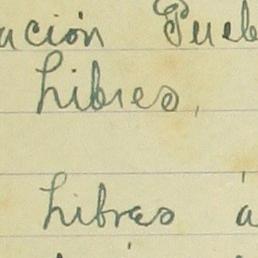 ación Pueb
Libres,
Libres a